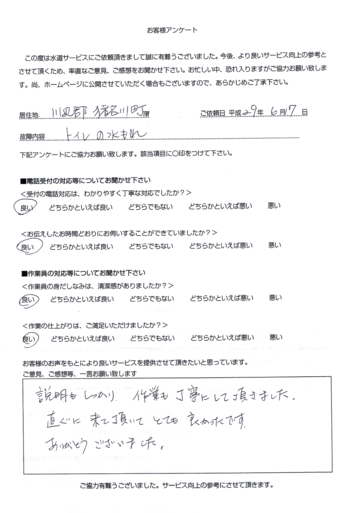 お客様アンケート
この度は水道サービスにご依頼頂きまして誠に有難うございました。今後、より良いサービス向上の参考と
させて頂くため、率直なご意見、ご感想をお聞かせ下さい。お忙しい中、恐れ入りますがご協力お願い致しま
す。尚、ホームページに公開させていただく場合もございますので、あらかじめご了承下さい。
居住地 川辺郡 猪名川町 様 ご依頼日 平成 29年 6月 17日
故障内容 トイレの水もれ
下記アンケートにご協力お願い致します。該当項目に○印をつけて下さい。
■電話受付の対応等についてお聞かせ下さい
<受付の電話対応は、わかりやすく丁寧な対応でしたか?>
良い どちらかといえば良い どちらでもない どちらかといえば悪い 悪い
<お伝えしたお時間どおりにお伺いすることができていましたか?>
良い どちらかといえば良い どちらでもない どちらかといえば悪い 悪い
■作業員の対応等についてお聞かせ下さい
<作業員の身だしなみは、清潔感がありましたか?>
良い どちらかといえば良い どちらでもない どちらかといえば悪い 悪い
<作業の仕上がりは、ご満足いただけましたか?>
良い どちらかといえば良い どちらでもない どちらかといえば悪い 悪い
お客様のお声をもとにより良いサービスを提供させて頂きたいと思っています。
ご意見、ご感想等、一言お願い致します
説明もしっかり 作業も丁寧にして頂きました。
直ぐに来て頂いてとても良かったです
ありがとうございました。
ご協力有難うございました。サービス向上の参考にさせて頂きます。